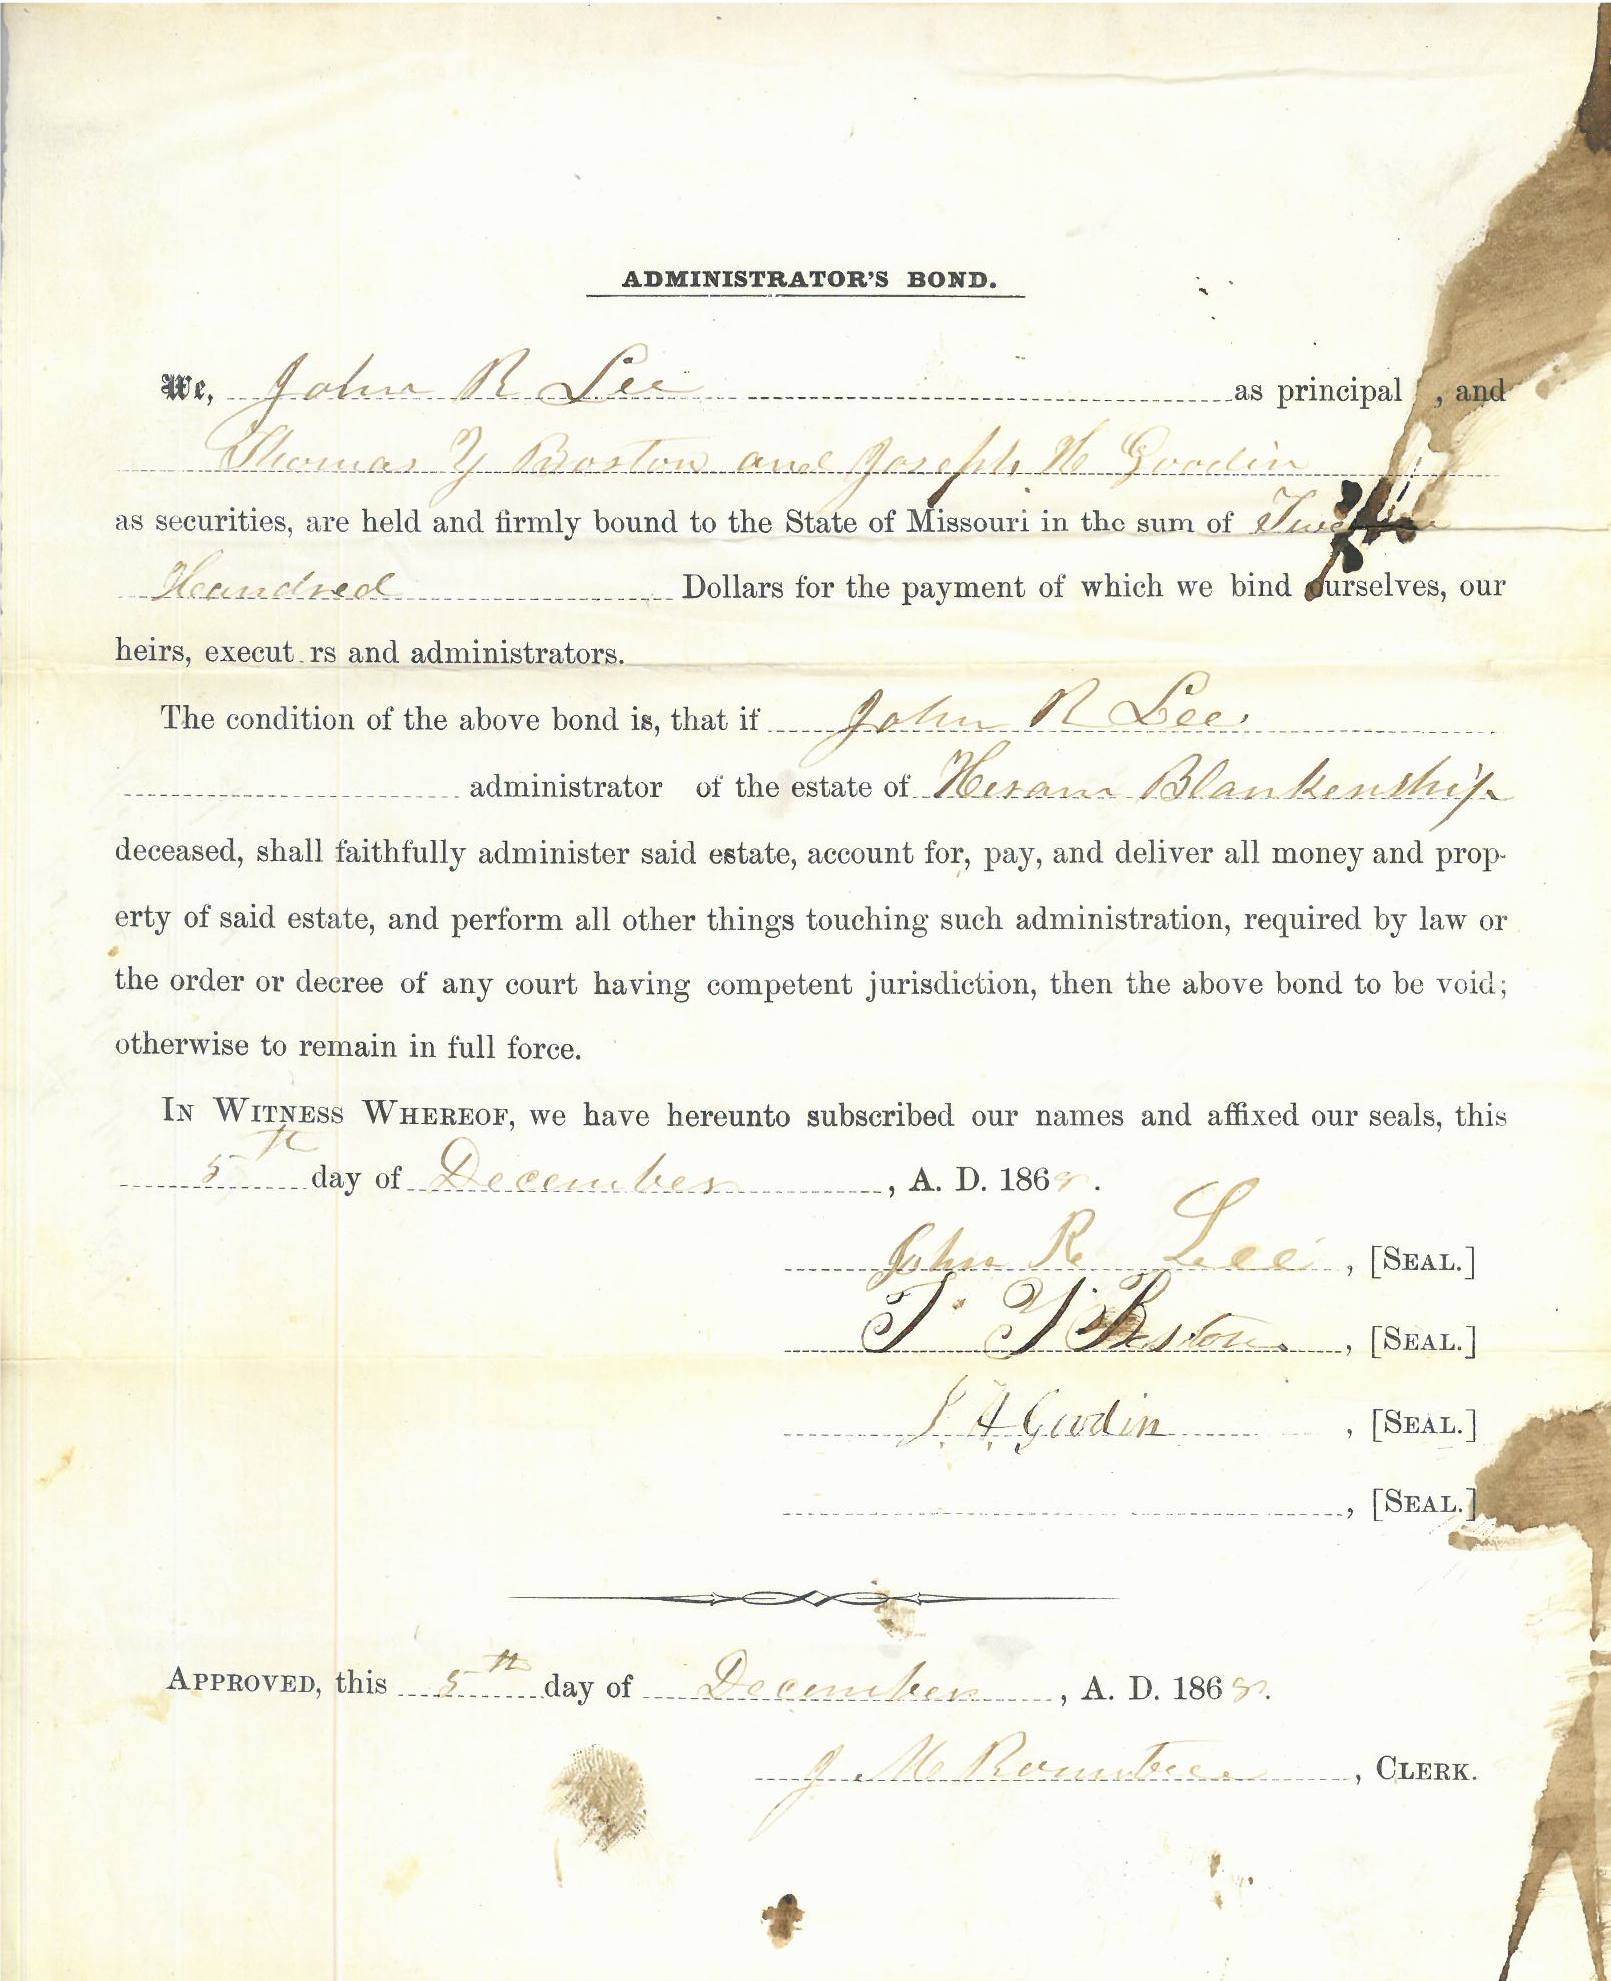 ADMINISTRATOR'S BOND.
We, John R Lee as principal , and
Thomas Y Boston and Joseph H Goodin
as securities, are held and firmly bound to the State of Missouri in the sum of
Hundred Dollars for the payment of which we bind ourselves, our
heirs, execut rs and administrators.
The condition of the above bond is, that if John R Lee
administrator of the estate of Hiram Blankenship
deceased, shall faithfully administer said estate, account for, pay, and deliver all money and prop-
erty of said estate, and perform all other things touching such administration, required by law or
the order or decree of any court having competent jurisdiction, then the above bond to be void;
otherwise to remain in full force.
IN WITNESS WHEREOF, we have hereunto subscribed our names and affixed our seals, this
5th day of December , A. D. 1868.
John R Lee , [SEAL.]
T. Y. Boston , [SEAL.]
J. H. Goodin , [SEAL.]
, [SEAL.]
APPROVED, this 5th day of December , A. D. 1868.
J M Rountree , CLERK.